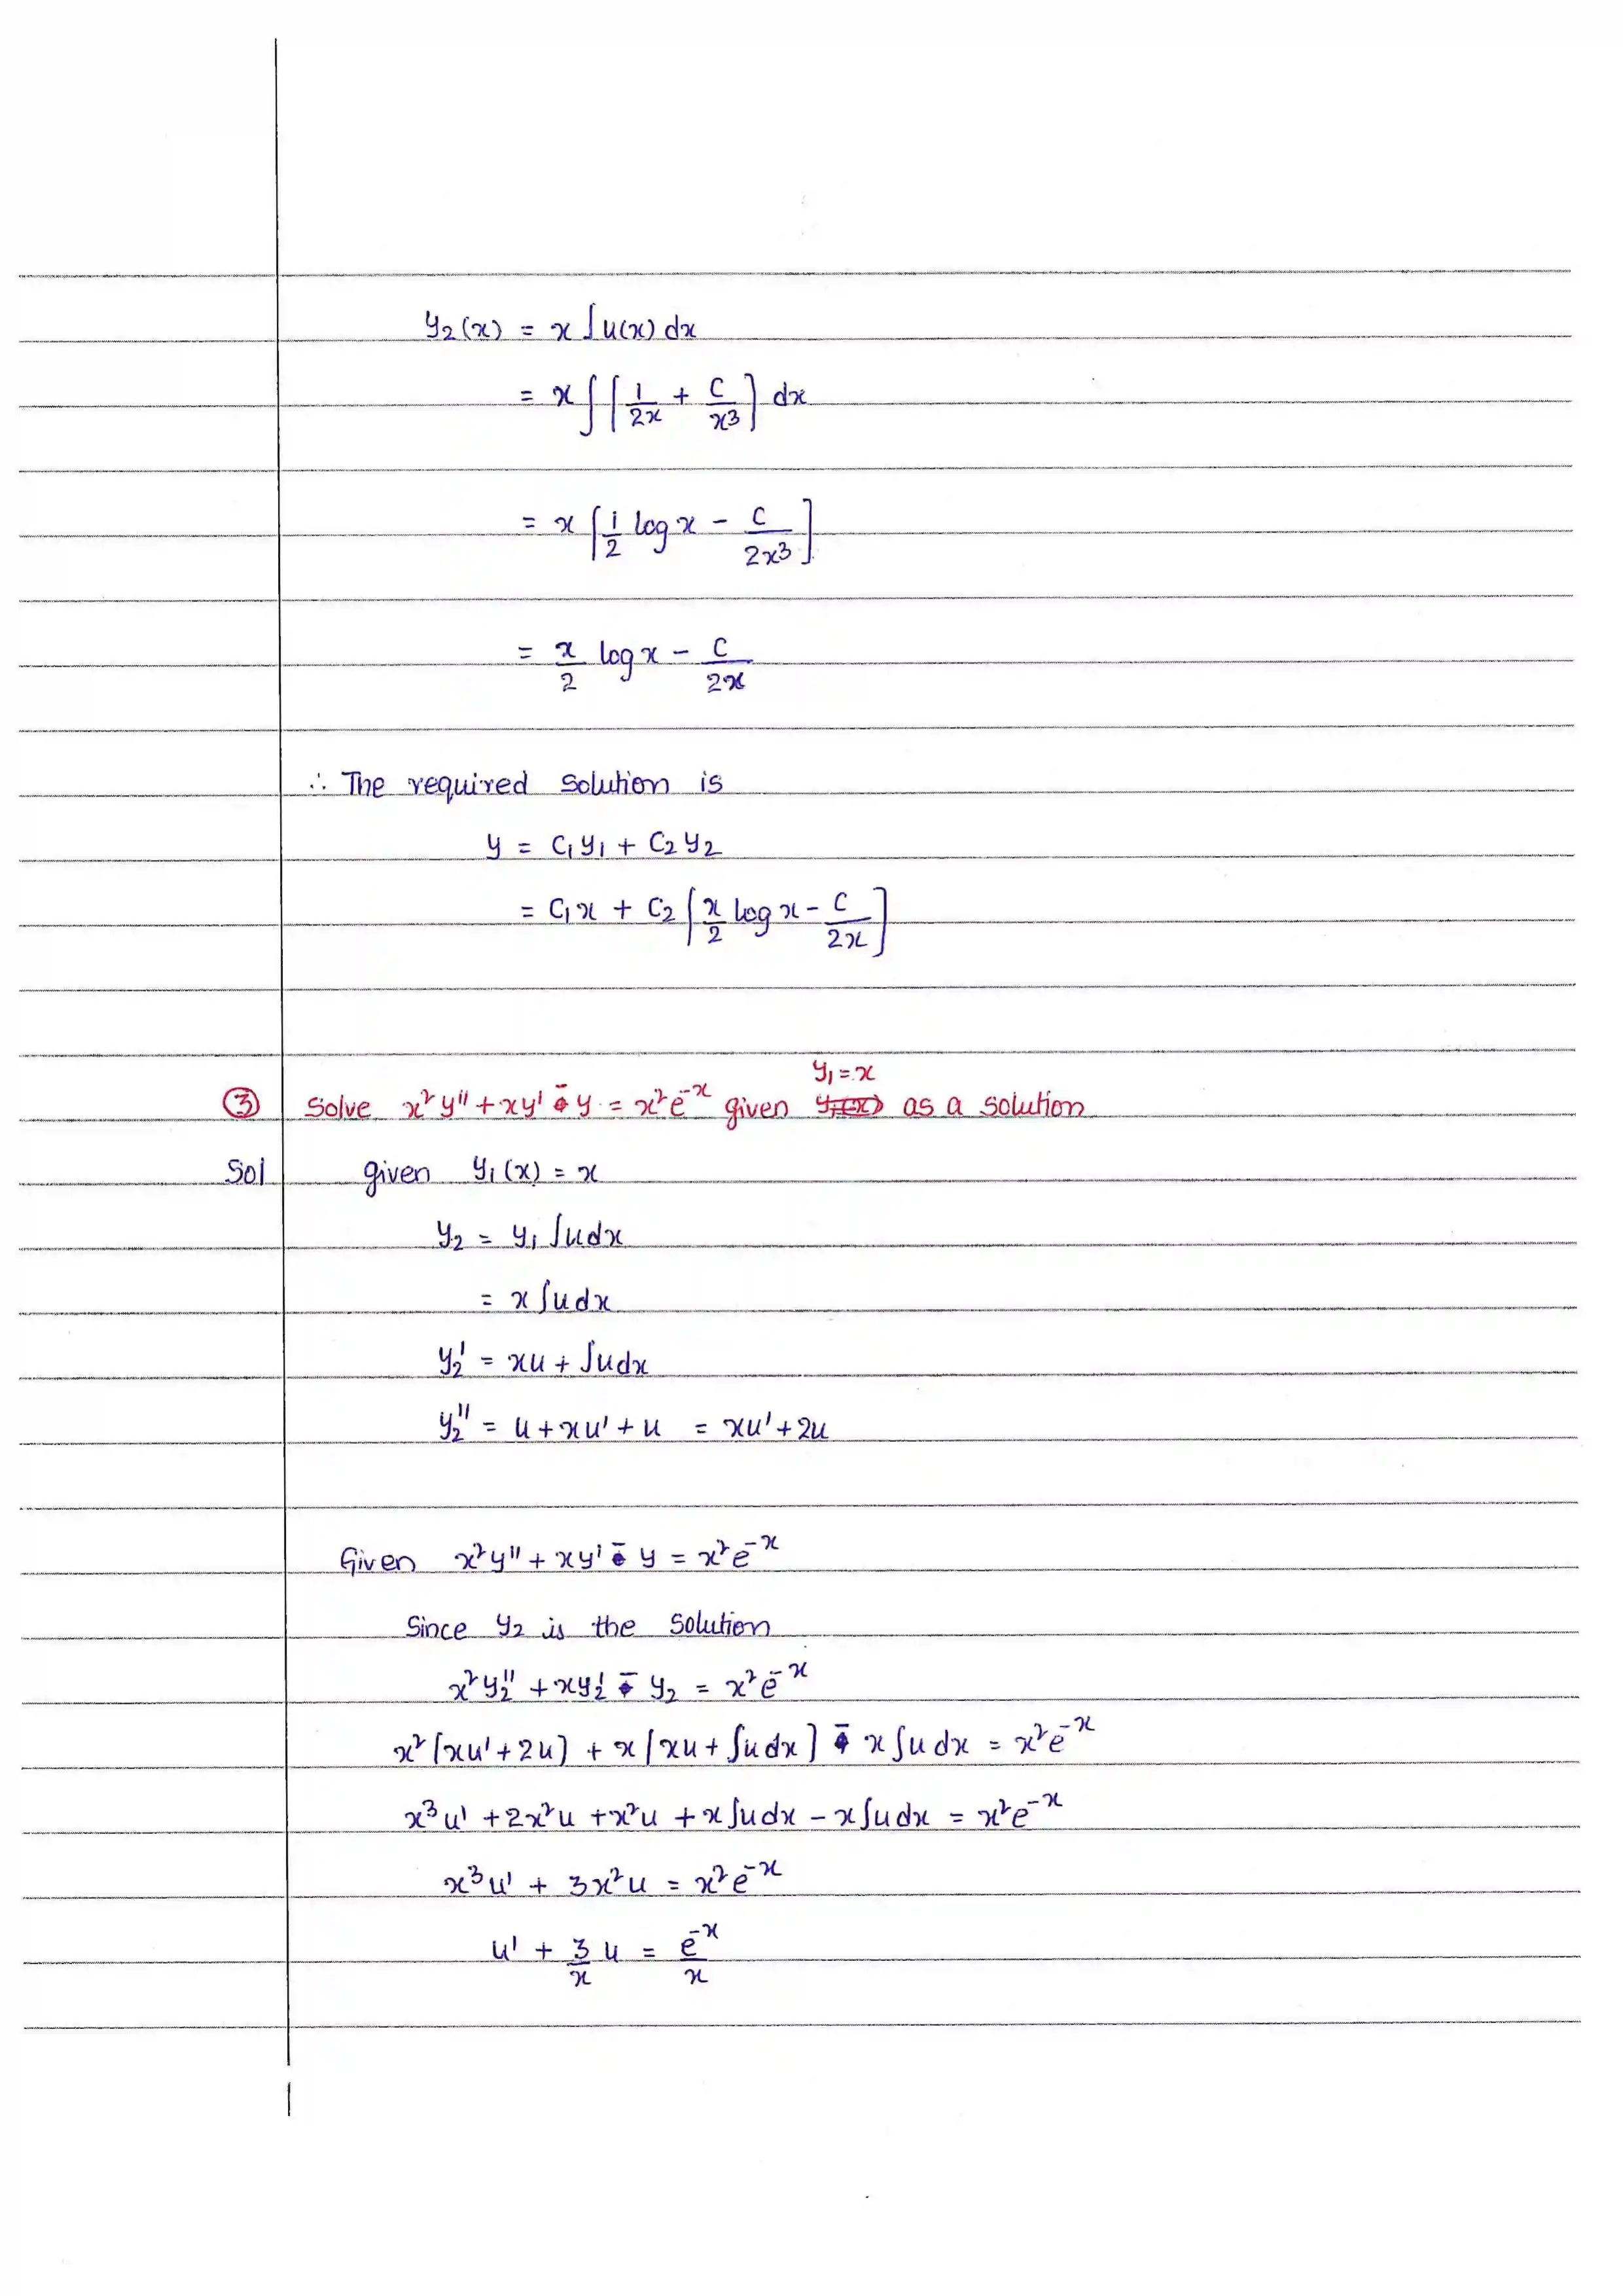 y₂(x) = x ∫ u(x) dx
= x ∫ [1/2x + C/x³] dx
= x [1/2 log x − C/2x³]
= x/2 log x − C/2x
∴ The required solution is
y = C₁y₁ + C₂y₂
= C₁x + C₂ [x/2 log x − C/2x]
y₁ = x
③ Solve x²y'' + xy' − y = x²e⁻ˣ given as a solution
Sol given y₁(x) = x
y₂ = y₁ ∫u dx
= x ∫u dx
y₂' = xu + ∫u dx
y₂'' = u + xu' + u = xu' + 2u
Given x²y'' + xy' − y = x²e⁻ˣ
Since y₂ is the solution
x²y₂'' + xy₂' − y₂ = x²e⁻ˣ
x²[xu' + 2u] + x[xu + ∫u dx] − x∫u dx = x²e⁻ˣ
x³u' + 2x²u + x²u + x∫u dx − x∫u dx = x²e⁻ˣ
x³u' + 3x²u = x²e⁻ˣ
u' + 3/x u = e⁻ˣ/x